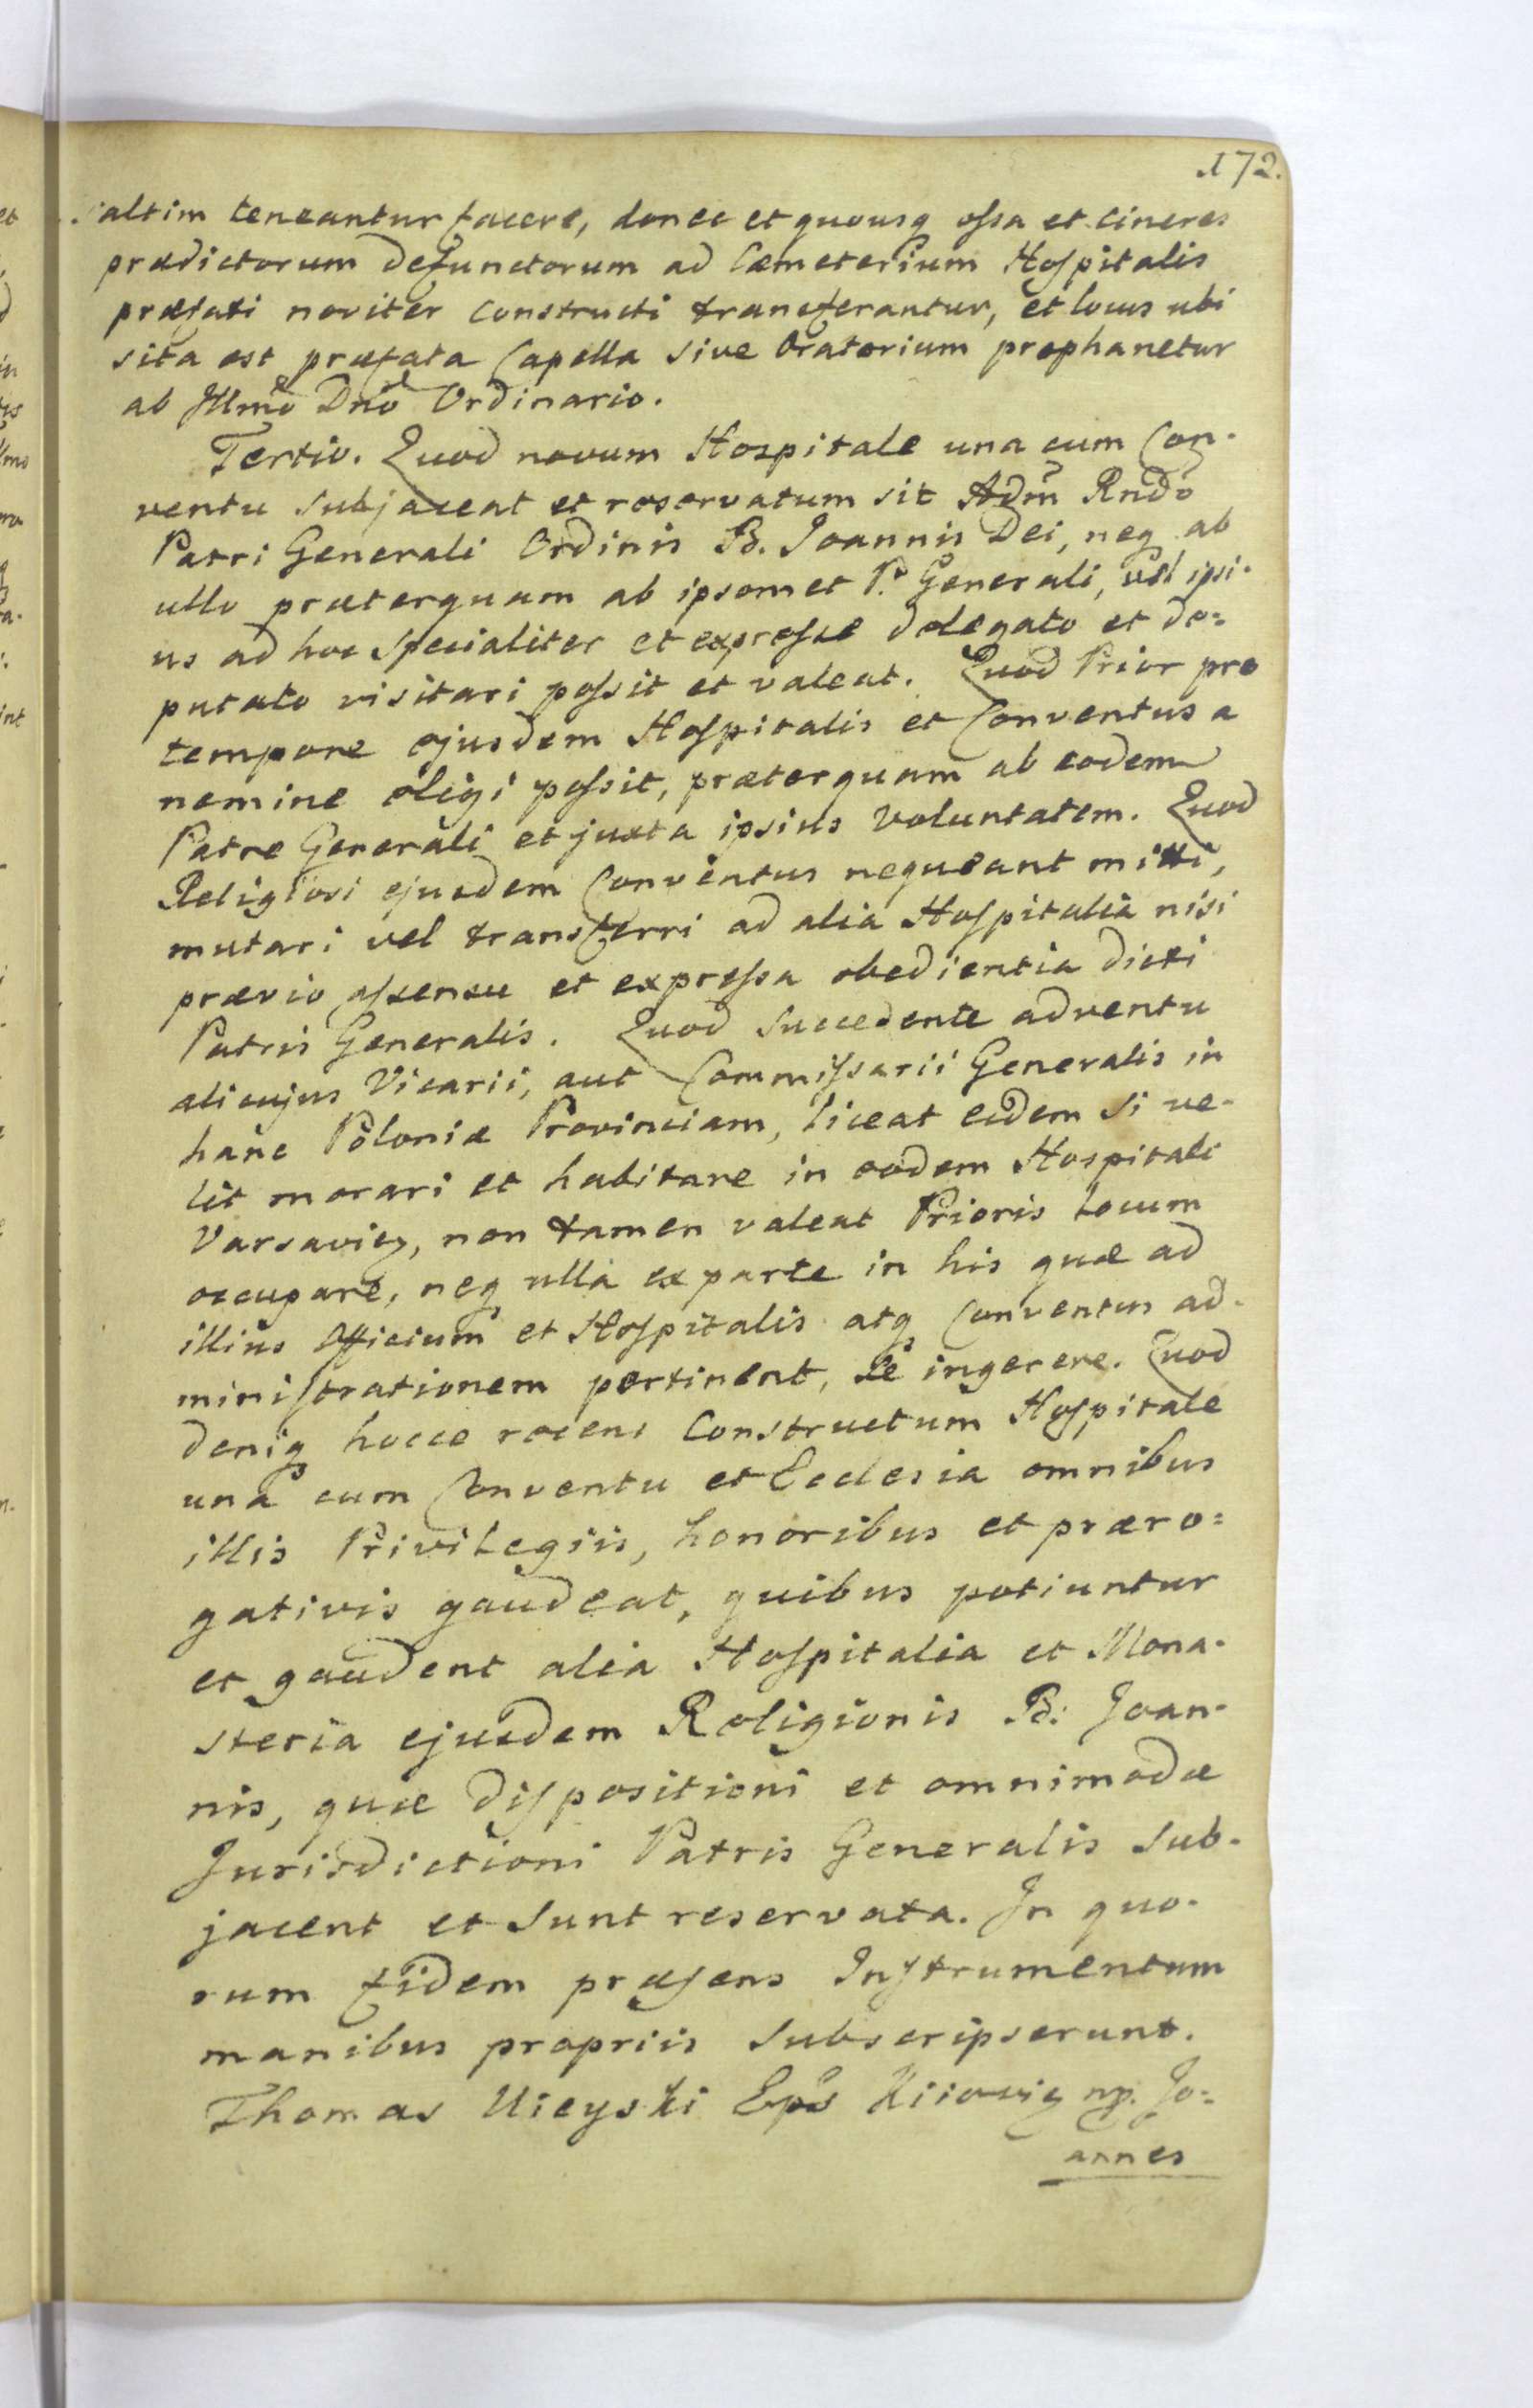 172.
saltim teneantur facere, donec et quousq ossa et cineres
prædictorum defunctorum ad Cæmeterium Hospitalis
præfati noviter constructi transferantur, et locus ubi
sita est præfata Capella sive Oratorium prophanetur
ab Illmo Dno Ordinario.
Tertio. Quod novum Hospitale una cum Con-
ventu subjaceat et reservatum sit Adm Rndo
Patri Generali Ordinis B. Joannis Dei, neq ab
ullo præterquam ab ipsomet P. Generali, vel ipsi-
us ad hoc specialiter et expresse delegato et de=
putato visitari possit et valeat. Quod Prior pro
tempore ejusdem Hospitalis et Conventus a
nemine eligi possit, præterquam ab eodem
Patre Generali et juxta ipsius voluntatem. Quod
Religiosi ejusdem Conventus nequeant mitti,
mutari vel transferri ad alia Hospitalia nisi
prævio assensu et expressa obedientia dicti
Patris Generalis. Quod succedente adventu
alicujus Vicarii, aut Commissarii Generalis in
hanc Poloniæ Provinciam, liceat eidem si ve-
lit morari et habitare in eodem Hospitali
Varsavię, non tamen valeat Prioris locum
occupare, neq ulla ex parte in his quæ ad
illius officium et Hospitalis atq Conventus ad-
ministrationem pertinent, se ingerere. Quod
deniq hocce recens constructum Hospitale
una cum Conventu et Ecclesia omnibus
illis Privilegiis, honoribus et præro=
gativis gaudeat, quibus potiuntur
et gaudent alia Hospitalia et Mona-
steria ejusdem Religionis B: Joan-
nis, quæ dispositioni et omnimodæ
Jurisdictioni Patris Generalis sub-
jacent et sunt reservata. In quo-
rum fidem præsens Instrumentum
manibus propriis subscripserunt.
Thomas Uieyski Eps Kiiovię mp. Jo=
annes